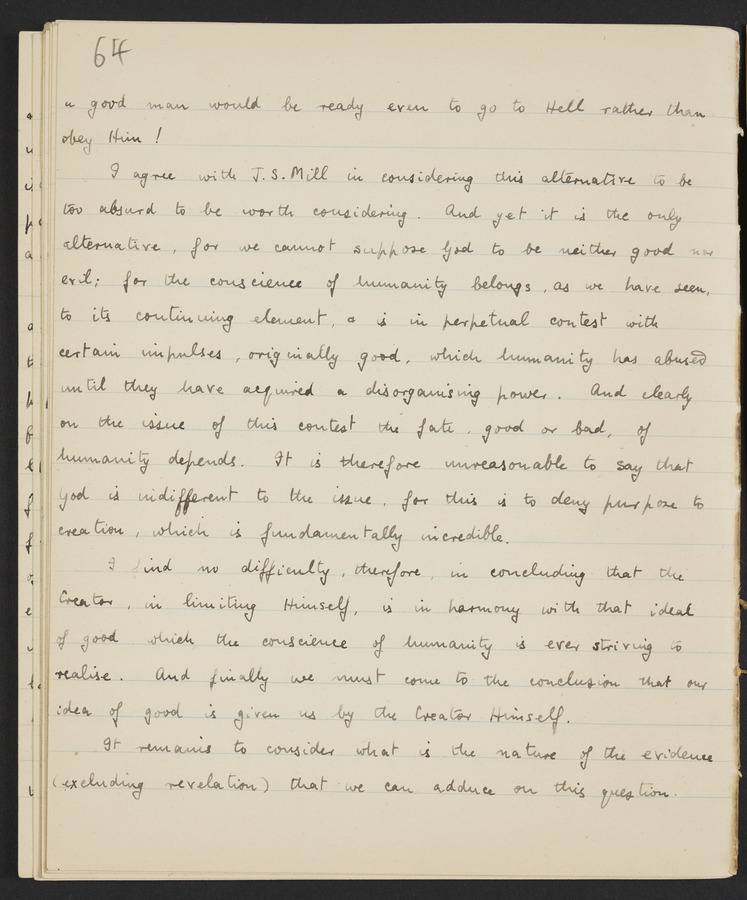 64
a good man would be ready even to go to Hell rather than
obey Him !
I agree with J.S. Mill in considering this alternative to be
too absurd to be worth considering. And yet it is the only
alternative, for we cannot suppose God to be neither good nor
evil; for the conscience of humanity belongs, as we have seen,
to its continuing element, & is in perpetual contest with
certain impulses, originally good, which humanity has abused
until they have acquired a disorganising power. And clearly
on the issue of this contest the fate, good or bad, of
humanity depends. It is therefore unreasonable to say that
God is indifferent to the issue, for this is to deny purpose to
creation, which is fundamentally incredible.
I find no difficulty, therefore, in concluding that the
Creator, in limiting Himself, is in harmony with that ideal
of good which the conscience of humanity is ever striving to
realise. And finally we must come to the conclusion that our
idea of good is given us by the Creator Himself.
It remains to consider what is the nature of the evidence
(excluding revelation) that we can adduce on this question.